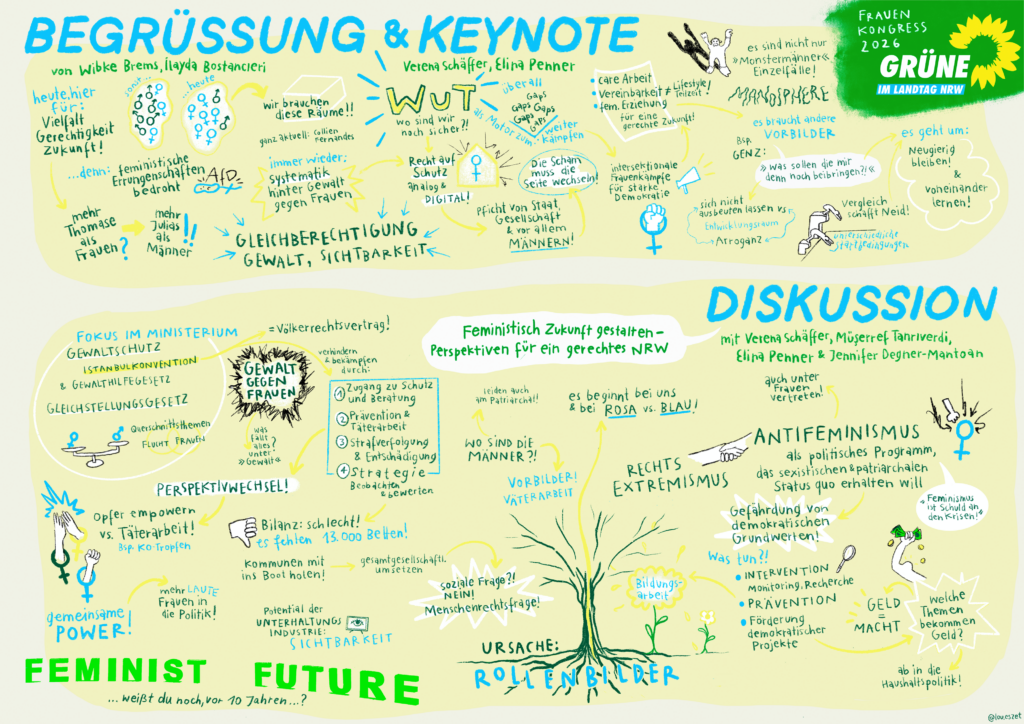 BEGRÜSSUNG & KEYNOTE
von Wibke Brems, İlayda Bostancıeri
Verena Schäffer, Elina Penner
FRAUEN
KONGRESS
2026
GRÜNE
IM LANDTAG NRW
heute, hier
für:
Vielfalt
Gerechtigkeit
Zukunft!
sonst...
heute
wir brauchen
diese Räume!!
ganz aktuell: Collien
Fernandes
...denn: feministische
Errungenschaften
bedroht
AfD
immer wieder:
systematik
hinter Gewalt
gegen Frauen
mehr
Thomase
als
Frauen?
mehr
Julias
als
Männer!!
GLEICHBERECHTIGUNG
GEWALT, SICHTBARKEIT
WUT
wo sind wir
noch sicher?!
Recht auf
Schutz
analog &
DIGITAL!
überall
Gaps
Gaps Gaps
Gaps
Gaps
als Motor zum
weiter
kämpfen
Die Scham
muss die
Seite wechseln!
Pflicht von Staat,
Gesellschaft
& vor allem
MÄNNERN!
• Care Arbeit
• Vereinbarkeit ≠ Lifestyle-
Teilzeit!
• fem. Erziehung
für eine
gerechte Zukunft!
intersektionale
Frauenkämpfe
für starke
Demokratie
es sind nicht nur
»Monstermänner«
Einzelfälle!
MANOSPHERE
es braucht andere
VORBILDER
Bsp.
GENZ:
»was sollen die mir
denn noch beibringen?!«
sich nicht
ausbeuten lassen vs
Entwicklungsraum
Arroganz
Vergleich
schafft Neid!
unterschiedliche
Startbedingungen
es geht um:
Neugierig
bleiben!
&
voneinander
lernen!
DISKUSSION
mit Verena Schäffer, Müşerref Tanrıverdi,
Elina Penner & Jennifer Degner-Mantoan
Feministisch Zukunft gestalten–
Perspektiven für ein gerechtes NRW
FOKUS IM MINISTERIUM
GEWALTSCHUTZ
ISTANBULKONVENTION
& GEWALTHILFEGESETZ
GLEICHSTELLUNGSGESETZ
Querschnittsthemen
FLUCHT FRAUEN
=Völkerrechtsvertrag!
GEWALT
GEGEN
FRAUEN
was
fällt
alles
unter
»Gewalt«
verhindern
& bekämpfen
durch:
1 Zugang zu Schutz
und Beratung
2 Prävention &
Täterarbeit
3 Strafverfolgung
& Entschädigung
4 Strategie
Beobachten
& bewerten
PERSPEKTIVWECHSEL!
Opfer empowern
vs. Täterarbeit!
Bsp. KO-Tropfen
Bilanz: schlecht!
es fehlen 13.000 Betten!
Kommunen mit
ins Boot holen!
gesamtgesellschaftl.
umsetzen
gemeinsame
POWER!
mehr LAUTE
Frauen in
die Politik!
Potential der
UNTERHALTUNGS
INDUSTRIE:
SICHTBARKEIT
FEMINIST FUTURE
...weißt du noch, vor 10 Jahren...?
leiden auch
am Patriarchat!
WO SIND DIE
MÄNNER?!
VORBILDER!
VÄTERARBEIT
es beginnt bei uns
& bei ROSA vs. BLAU!
soziale Frage?!
NEIN!
Menschenrechtsfrage!
URSACHE:
ROLLENBILDER
Bildungs-
arbeit
auch unter
Frauen
vertreten!
RECHTS
EXTREMISMUS
ANTIFEMINISMUS
als politisches Programm,
das sexistischen & patriarchalen
Status quo erhalten will
Gefährdung von
demokratischen
Grundwerten!
»Feminismus
ist Schuld an
den Krisen!«
Was tun?!
• INTERVENTION
Monitoring, Recherche
• PRÄVENTION
• Förderung
demokratischer
Projekte
GELD
=
MACHT
welche
Themen
bekommen
Geld?
ab in die
Haushaltspolitik!
@lou.eszet